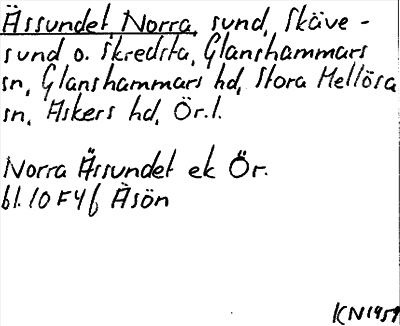 Ässundet, Norra, sund, Skäve-
sund o. Skredsta, Glanshammars
sn, Glanshammars hd, Stora Mellösa
sn, Askers hd, Ör.l.
Norra Ässundet ek Ör.
bl. 10 F 4 f Äsön
KN 1959